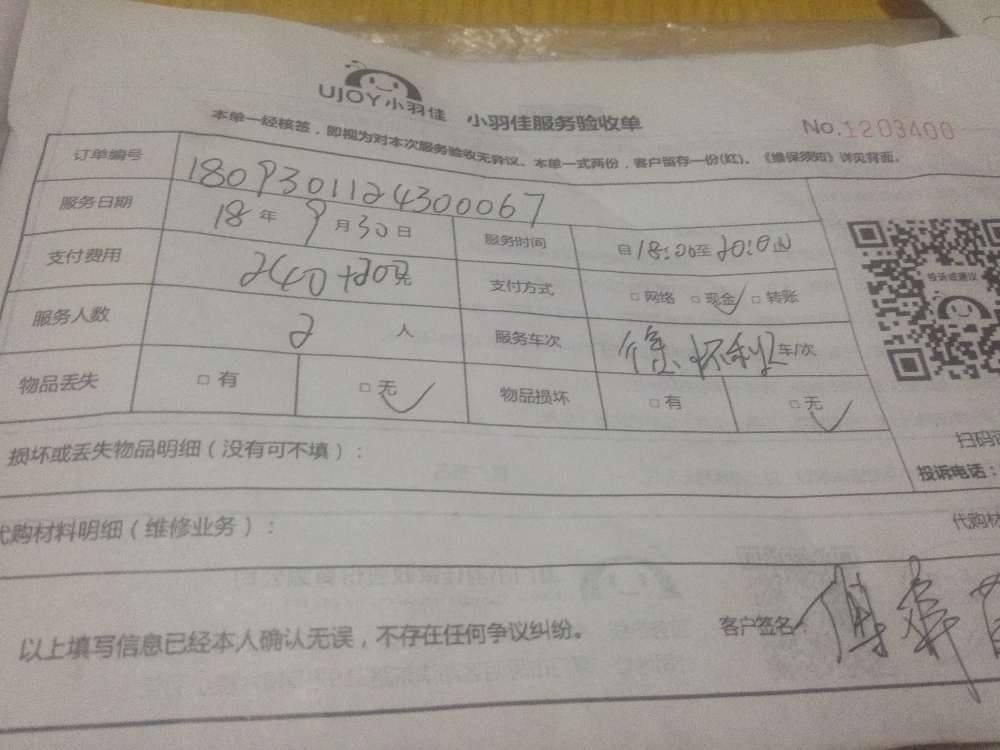 UJOY小羽佳 小羽佳服务验收单
No.1203400
本单一经核签，即视为对本次服务验收无异议。本单一式两份，客户留存一份(红)。《维保须知》详见背面。
订单编号 1809301124300067
服务日期 18年9月30日 服务时间 自18:00至20:00
支付费用 240+20元 支付方式 □网络 □现金✓ □转账
服务人数 2人 服务车次 车/次
物品丢失 □有 □无✓ 物品损坏 □有 □无✓
投诉或建议
扫码
投诉电话：
损坏或丢失物品明细（没有可不填）：
代购材料明细（维修业务）：
代购材
以上填写信息已经本人确认无误，不存在任何争议纠纷。
客户签名：